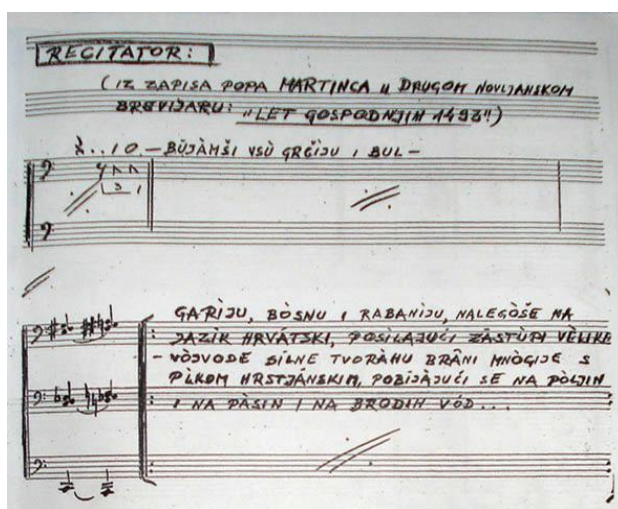 RECITATOR:
(IZ ZAPISA POPA MARTINCA U DRUGOM NOVLJANSKOM
BREVIJARU: "LET GOSPODNJIH 1493")
I..10 – BÙJÀMŠI VSÙ GRČÌJU I BUL–
3
GARÌJU, BÒSNU I RABANÌJU, NALEGÒŠE NA
JAZÌK HRVÁTSKI, POSÌLAJUĆI ZÀSTÙPI VÈLIKE
– VÒJVODE SÌLNE TVORÀHU BRÂNI MNÒGIJE S
PÙKOM HRSTJÁNSKIM, POBÌJÀJUĆI SE NA PÒLJIH
I NA PÀSIH I NA BRODÌH VÓD...